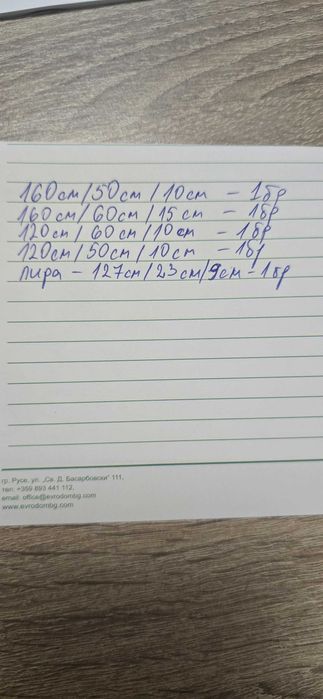 160см/50см/10см - 1бр
160см/60см/15см - 1бр
120см/60см/10см - 1бр
120см/50см/10см - 1бр
лира - 127см/23см/9см - 1бр
гр. Русе, ул. „Св. Д. Басарбовски" 111,
тел: +359 893 441 112,
email: office@evrodombg.com
www.evrodombg.com